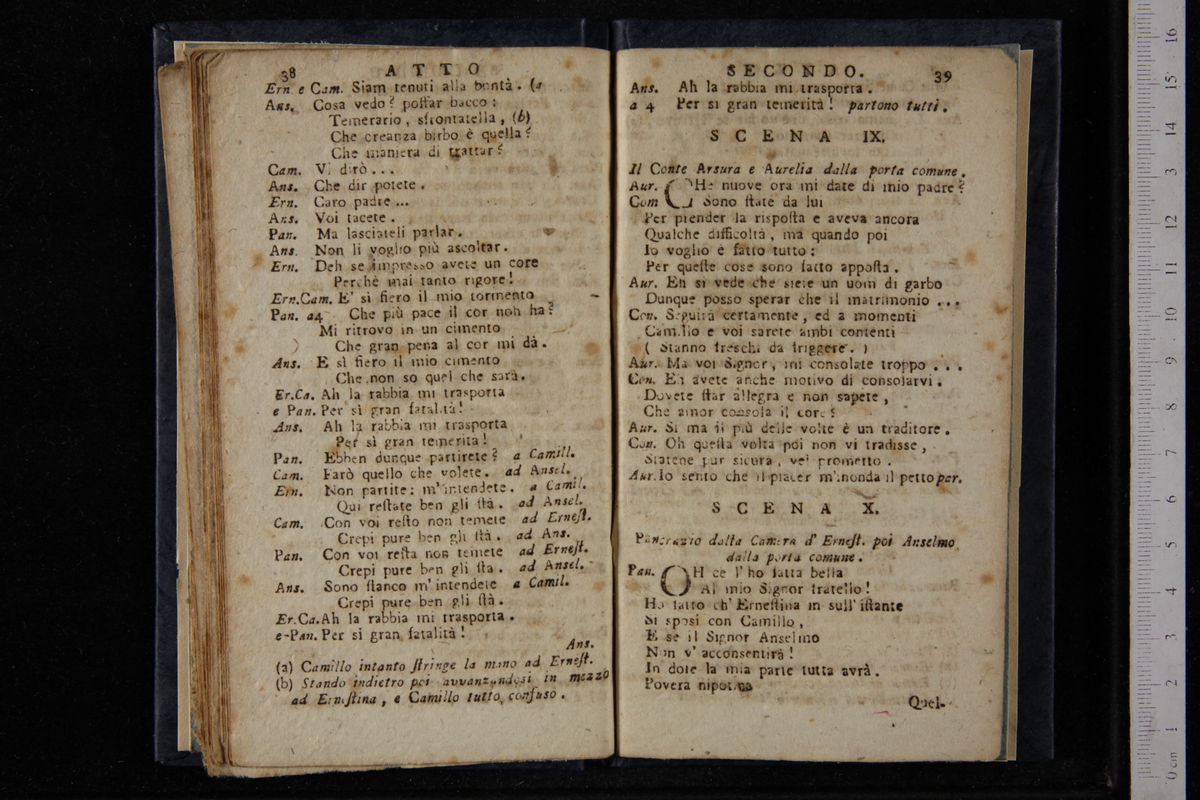 38 ATTO
Ern e Cam. Siam tenuti alla bontà. (a
Ans. Cosa vedo? poſſar bacco:
Temerario, sfrontatella, (b)
Che creanza birbo è quella?
Che maniera di trattar?
Cam. Vi dirò...
Ans. Che dir potete.
Ern. Caro padre...
Ans. Voi tacete.
Pan. Ma lasciateli parlar.
Ans. Non li voglio più ascoltar.
Ern. Deh se impresso avete un core
Perchè mai tanto rigore!
Ern.Cam. E' sì fiero il mio tormento
Pan. a4 Che più pace il cor non ha?
Mi ritrovo in un cimento
Che gran pena al cor mi dà.
Ans. E sì fiero il mio cimento
Che non so quel che sarà.
Er.Ca. Ah la rabbia mi trasporta
e Pan. Per sì gran fatalità!
Ans. Ah la rabbia mi trasporta
Per sì gran temerità!
Pan. Ebben dunque partirete? a Camill.
Cam. Farò quello che volete. ad Ansel.
Ern. Non partite: m'intendete. a Camil.
Qui reſtate ben gli ſtà. ad Ansel.
Cam. Con voi reſto non temete ad Erneſt.
Crepi pure ben gli ſtà. ad Ans.
Pan. Con voi reſta non temete ad Erneſt.
Crepi pure ben gli ſta. ad Ansel.
Ans. Sono ſtanco m'intendete a Camil.
Crepi pure ben gli ſtà.
Er.Ca. Ah la rabbia mi trasporta.
e Pan. Per sì gran fatalità!
Ans.
(a) Camillo intanto ſtringe la mano ad Erneſt.
(b) Stando indietro poi avvanzandosi in mezzo
ad Erneſtina, e Camillo tutto confuso.
SECONDO. 39
Ans. Ah la rabbia mi trasporta.
a 4 Per sì gran temerità! partono tutti.
SCENA IX.
Il Conte Arsura e Aurelia dalla porta comune.
Aur. CHe nuove ora mi date di mio padre?
Con Sono ſtate da lui
Per prender la rispoſta e aveva ancora
Qualche difficoltà, ma quando poi
Io voglio è fatto tutto:
Per queſte cose sono fatto appoſta.
Aur. Eh si vede che siete un uom di garbo
Dunque posso sperar che il matrimonio...
Con. Seguirà certamente, ed a momenti
Camillo e voi sarete ambi contenti
( Stanno freschi da friggere. )
Aur. Ma voi Signor, mi consolate troppo...
Con. Eh avete anche motivo di consolarvi.
Dovete ſtar allegra e non sapete,
Che amor consola il core?
Aur. Si ma il più delle volte è un traditore.
Con. Oh queſta volta poi non vi tradisse,
Statene pur sicura, vel prometto.
Aur. Io sento che il piacer m'inonda il petto par.
SCENA X.
Pancrazio dalla Camera d'Erneſt. poi Anselmo
dalla porta comune.
Pan. OH ce l'ho fatta bella
Al mio Signor fratello!
Ho fatto ch'Erneſtina in sull'iſtante
Si sposi con Camillo,
E se il Signor Anselmo
Non v'acconsentirà!
In dote la mia parte tutta avrà.
Povera nipotina
Quel-
0 cm 1 2 3 4 5 6 7 8 9 10 11 12 13 14 15 16